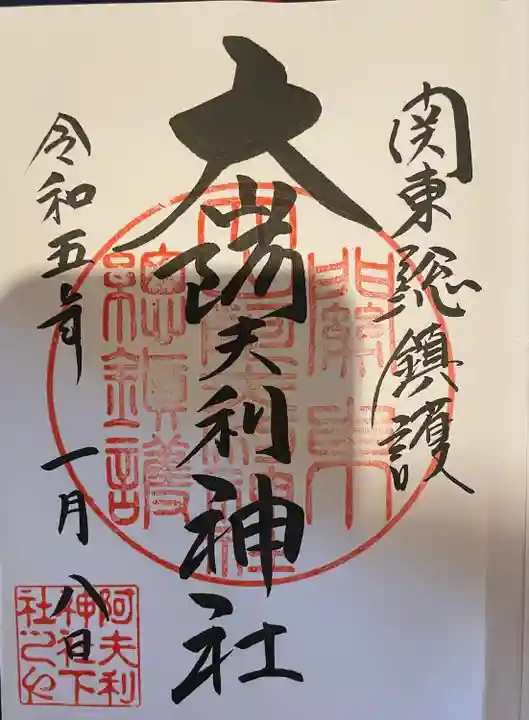 関東総鎮護
大山阿夫利神社
令和五年
一月八日
關東
大山阿夫利神社
總鎮護
阿夫利
神社下
社之印